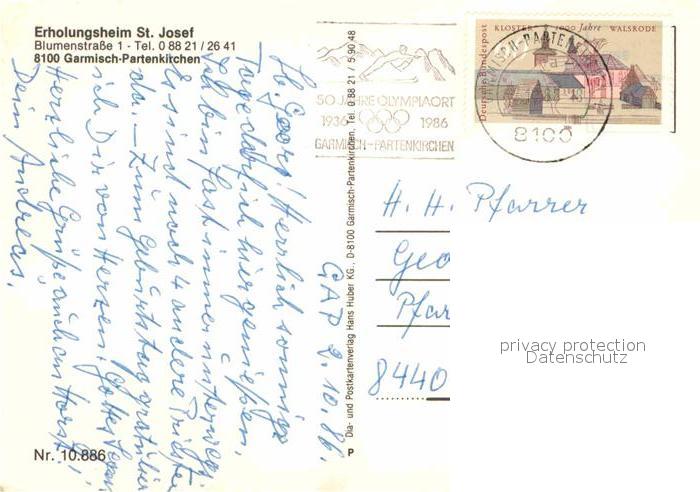 Erholungsheim St. Josef
Blumenstraße 1 - Tel. 0 88 21 / 26 41
8100 Garmisch-Partenkirchen
GAP 2.10.86.
Lb. Georg! Herrlich sonnige
Tage darf ich hier genießen.
Ich bin fast immer unterwegs.
Es sind noch 4 andere Priester
da. – Zum Geburtstag gratuliere
ich Dir von Herzen. Gottes Segen!
Herzliche Grüße auch an Horst!
Dein Andreas.
Nr. 10.886
Dia- und Postkartenverlag Hans Huber KG., D-8100 Garmisch-Partenkirchen, Tel. 0 88 21 / 5 90 48
P
50 JAHRE OLYMPIAORT
1936 1986
GARMISCH-PARTENKIRCHEN
Deutsche Bundespost
KLOSTER 1000 Jahre WALSRODE
GARMISCH-PARTENKIRCHEN
8100
H. H. Pfarrer
Geo
Pfar
8440
privacy protection
Datenschutz